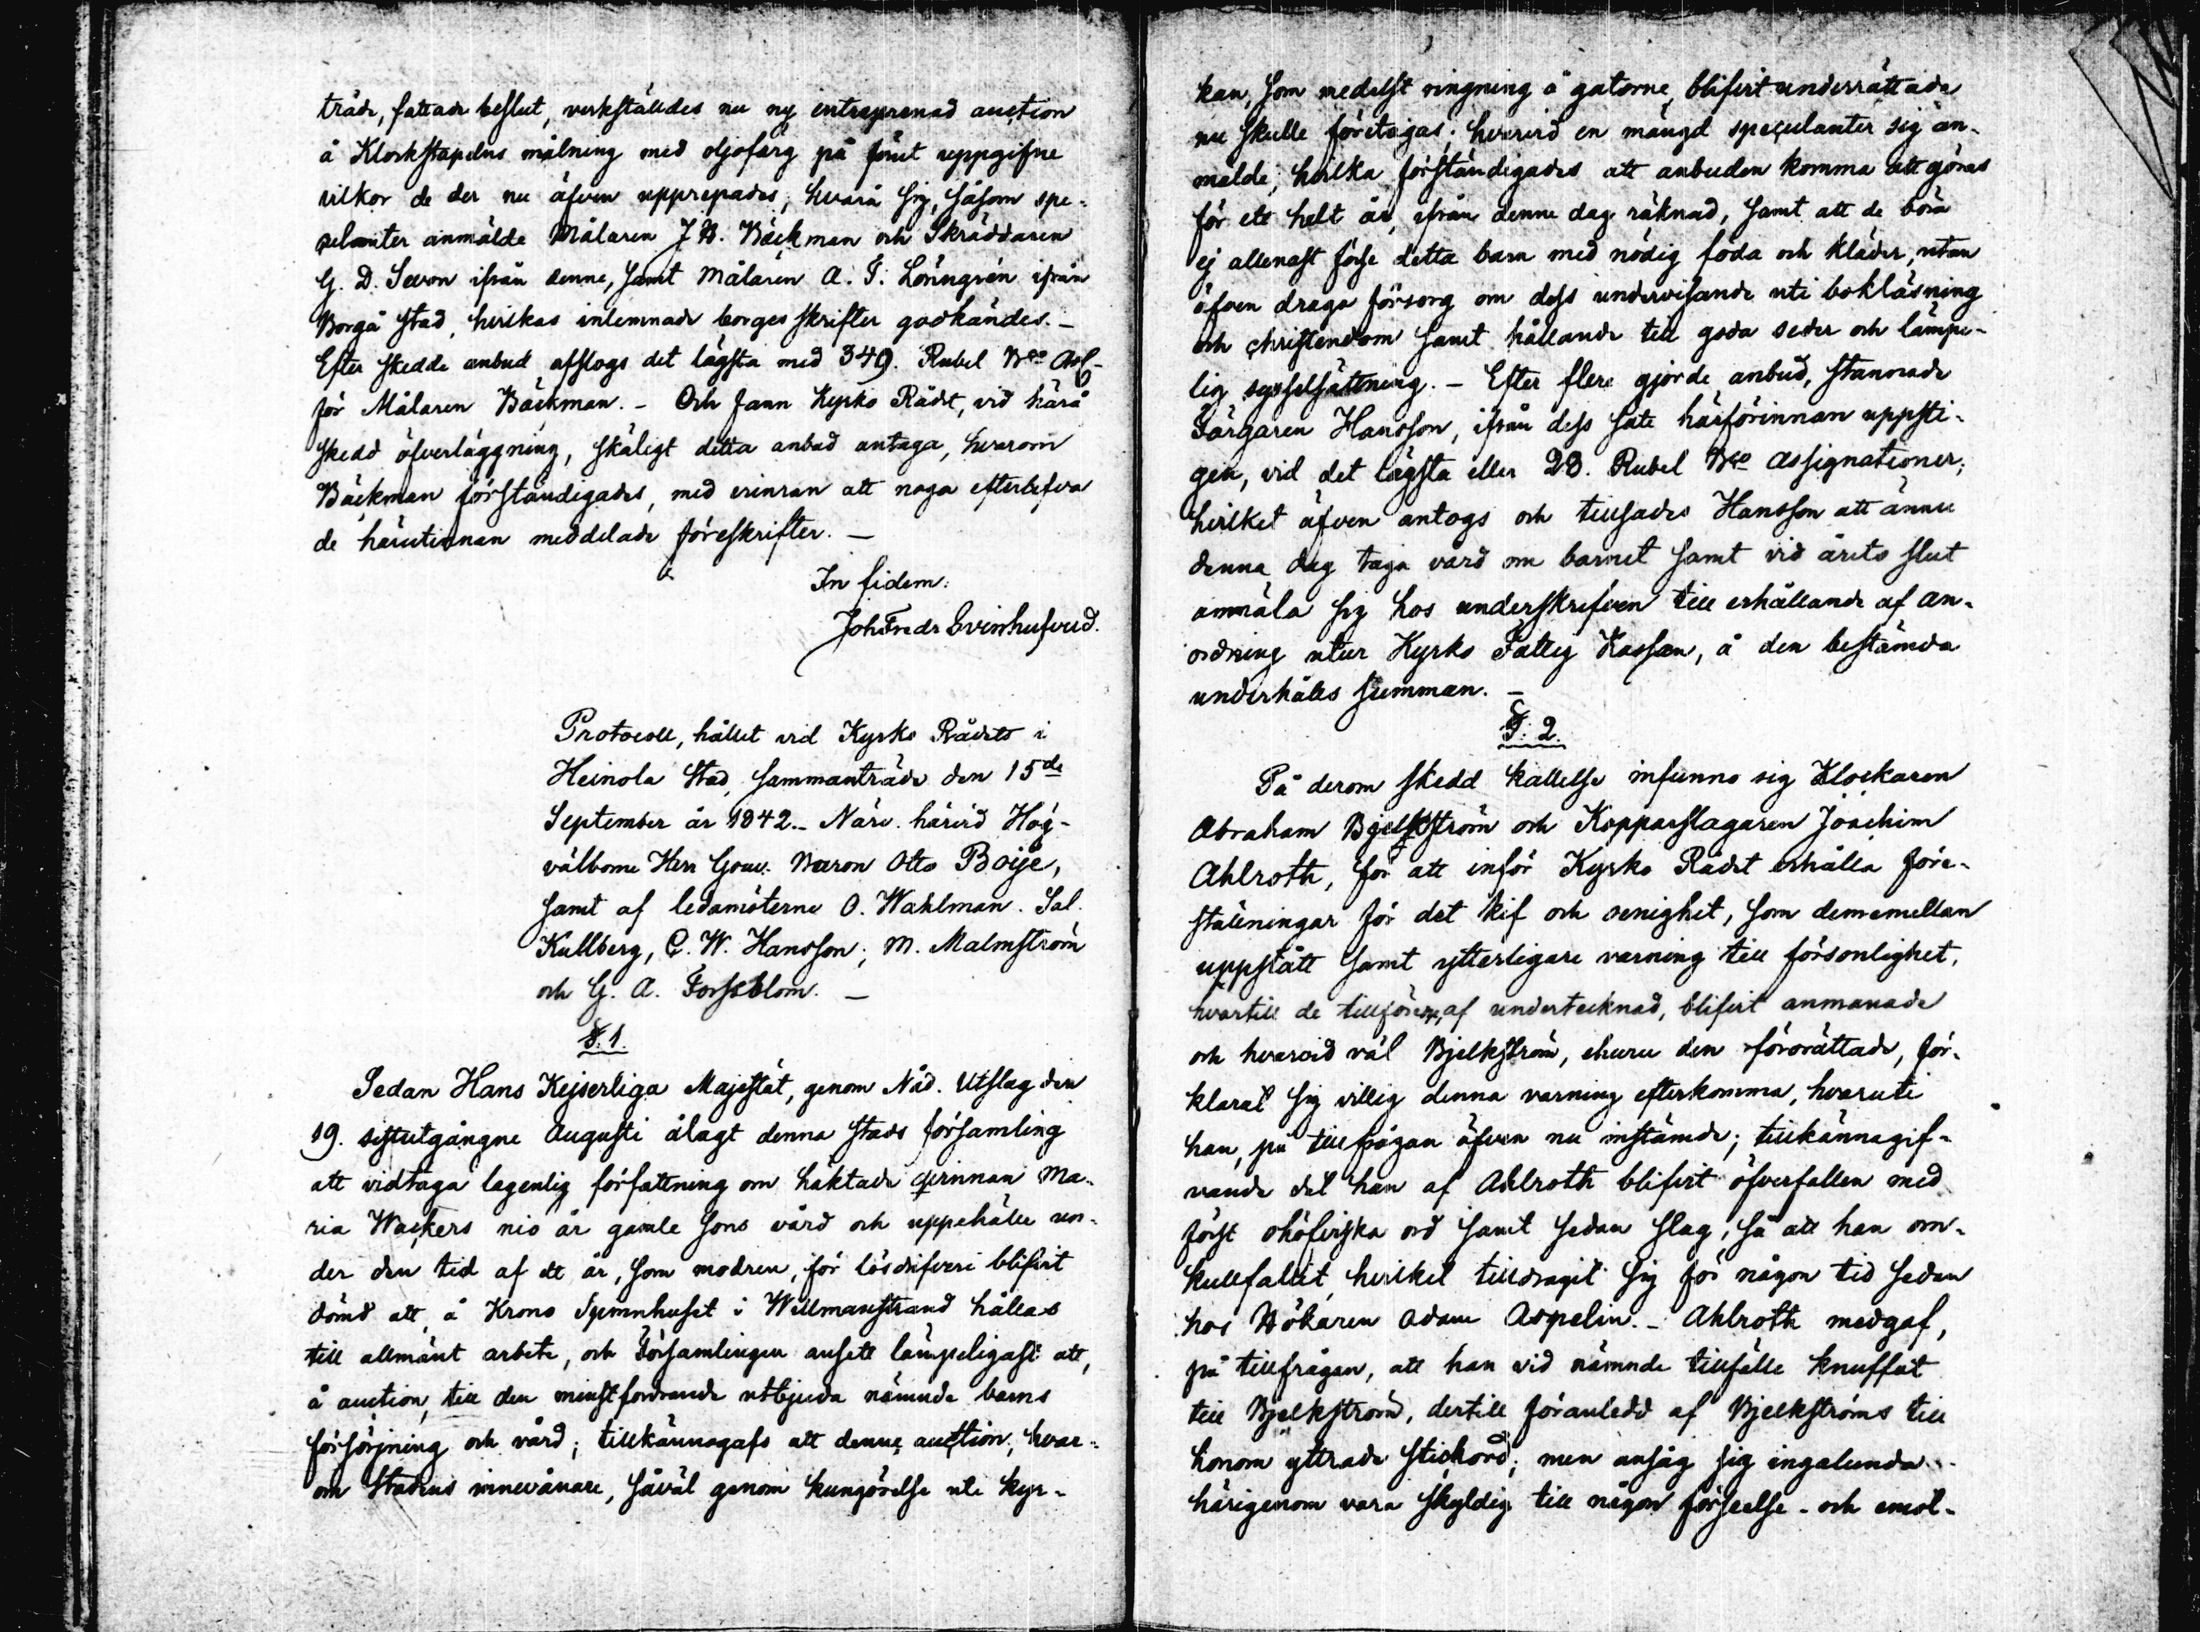 träde, fattade beslut, verkställdes nu ny entreprenad auction
å Klockstapelns målning med oljofärg på förut uppgifne
vilkor de der nu äfven upprepades; hvarå sig, såsom spe-
culanter anmälde Målaren J. H. Bäckman och Skräddaren
G. D. Sevon ifrån denne, samt Målaren A. F. Lönngrén ifrån
Borgå stad, hvilkas inlemnade borges skrifter godkändes. –
Efter skedde anbud afslogs det lägsta med 349. Rubel Bco Ass.
för Målaren Bäckman. – Och fann Kyrko Rådet, vid härå
skedd öfverläggning, skäligt detta anbud antaga, hvarom
Bäckman förständigades, med erinran att noga efterlefva
de härutinnan meddelade föreskrifter. –
In fidem:
Joh Fredr Svinhufvud.
Protocoll, hållet vid Kyrko Rådets i
Heinola Stad, sammanträde den 15de
September år 1842. – Närv. härvid Hög-
välborne Herr Gouv. Baron Otto Boije,
samt af ledamöterne O. Wahlman. Sal.
Kullberg, C. W. Hansson; M. Malmström
och G. A. Forssblom. –
§. 1.
Sedan Hans Kejserliga Majestät, genom Nåd. Utslag den
19. sistutgångne Augusti ålagt denna stads församling
att vidtaga lagenlig författning om häktade qvinnan Ma-
ria Wackers nio år gamle sons vård och uppehälle un-
der den tid af ett år, som modren, för lösdrifveri blifvit
dömd att å Krono Spinnhuset i Willmanstrand hållas
till allmänt arbete, och Församlingen ansett lämpeligast att,
å auction, till den minstfordrande utbjuda nämnde barns
försörjning och vård; tillkännagafs att denne auction, hvar-
om stadens innevånare, såväl genom kungörelse uti kyr-
kan, som medelst ringning å gatorne, blifvit underrättade
nu skulle företagas; hvarvid en mängd speculanter sig an-
mälde; hvilka förständigades att anbuden komma att göras
för ett helt år, ifrån denne dag räknad, samt att de böra
ej allenast förse detta barn med nödig föda och kläder, utan
äfven draga försorg om dess undervisande uti bokläsning
och christendom samt hållande till goda seder och lämpe-
lig sysselsättning. – Efter flere gjorde anbud, stannade
Färgaren Hansson, ifrån dess säte härförinnan uppsti-
gen, vid det lägsta eller 28. Rubel Bco Assignationer;
hvilket äfven antogs och tillsades Hansson att ännu
denna dag taga vård om barnet samt vid årets slut
anmäla sig hos underskrifven till erhållande af an-
ordning utur Kyrko Fattig Kassan, å den bestämda
underhålls summan. –
§. 2.
På derom skedd kallelse infunno sig Klockaren
Abraham Bjelkström och Kopparslagaren Joachim
Ahlroth, för att inför Kyrko Rådet erhålla före-
ställningar för det kif och oenighet, som dememellan
uppstått samt ytterligare varning till försonlighet,
hvartill de tillförene, af undertecknad, blifvit anmanade
och hvarvid väl Bjelkström, ehuru den förorättade, för-
klarat sig villig denna varning efterkomma, hvaruti
han, på tillfrågan äfven nu instämde; tillkännagif-
vande det han af Ahlroth blifvit öfverfallen med
först ohöfviska ord samt sedan slag, så att han om-
kullfallit, hvilket tilldragit sig för någon tid sedan
hos Hökaren Adam Aspelin. – Ahlroth medgaf,
på tillfrågan, att han vid nämnde tillfälle knuffat
till Bjelkström, dertill föranledd af Bjelkströms till
honom yttrade stickord; men ansåg sig ingalunda
härigenom vara skyldig till någon förseelse – och emot-